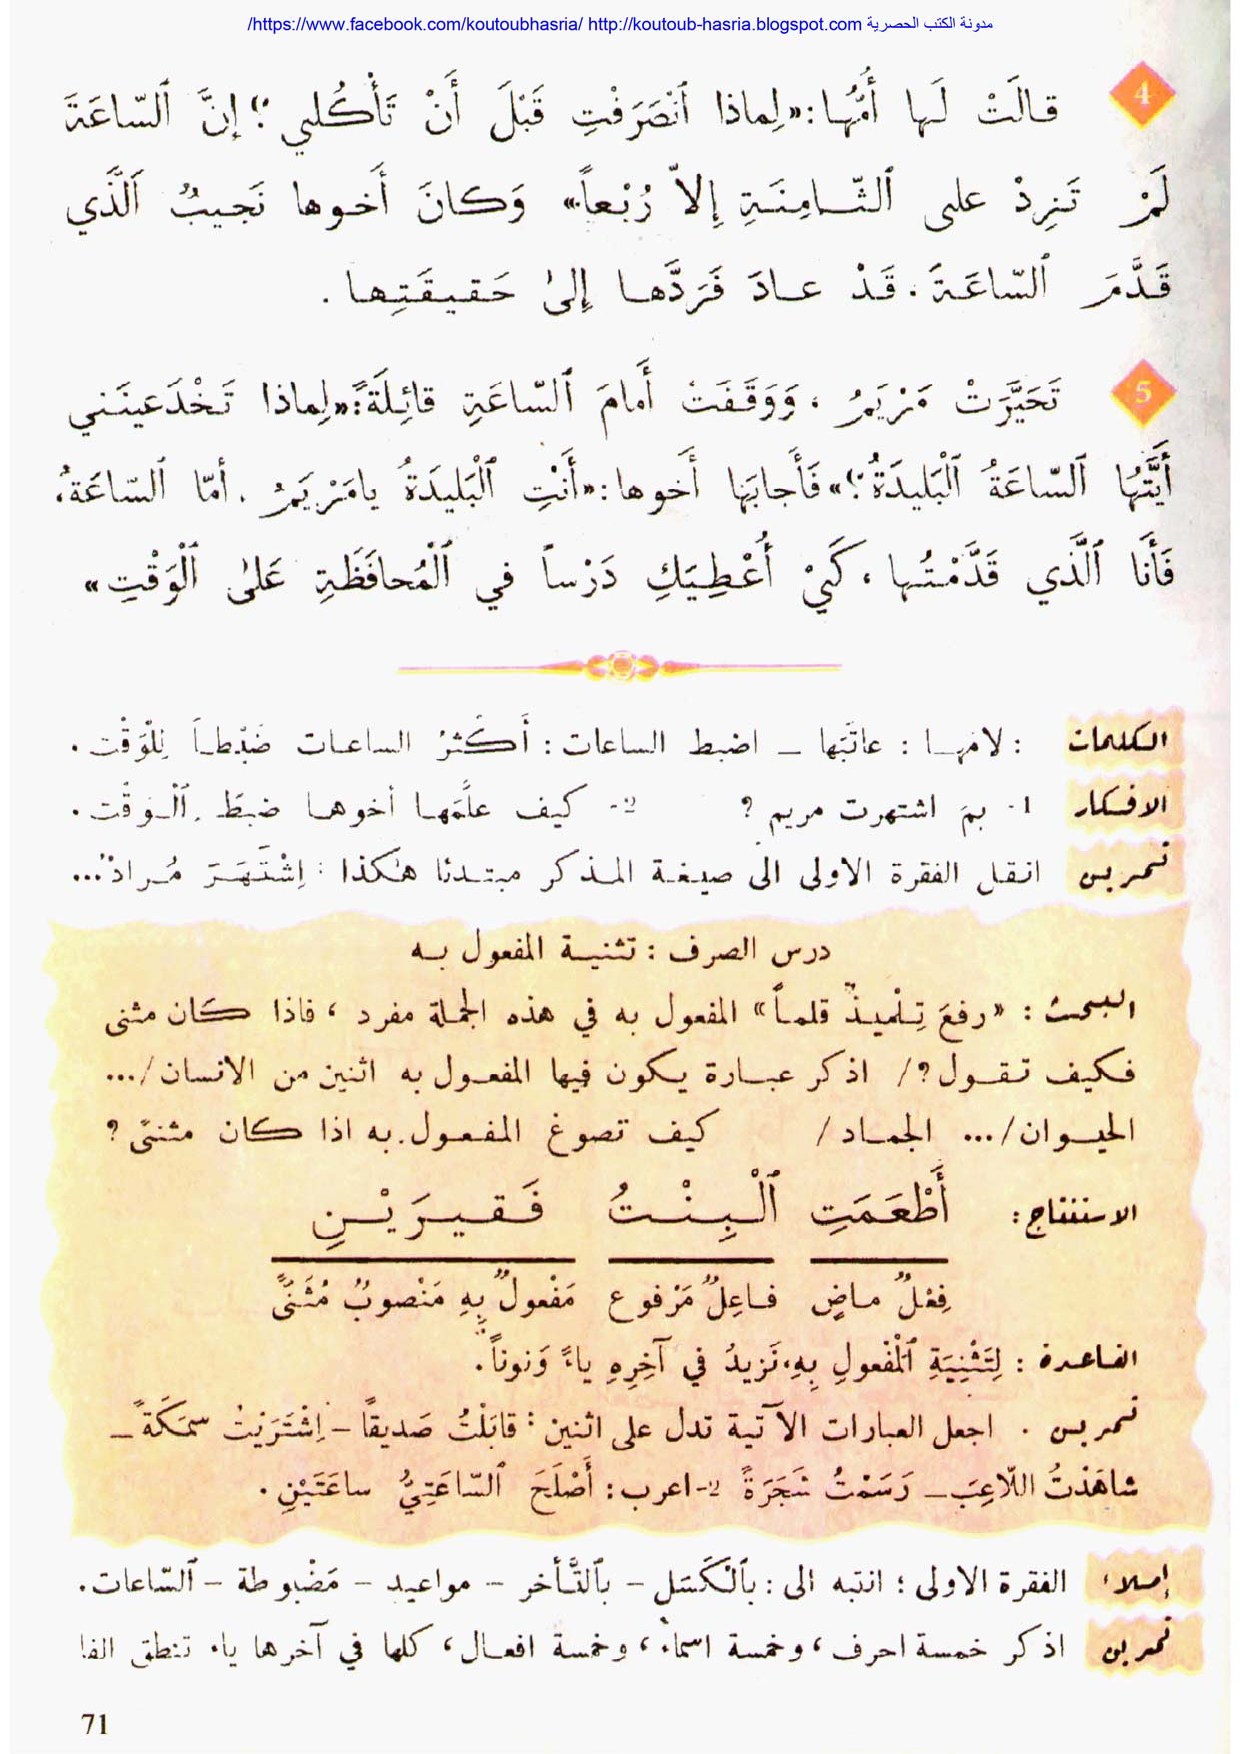 /https://www.facebook.com/koutoubhasria/ http://koutoub-hasria.blogspot.com مدونة الكتب الحصرية
4 قالَتْ لَها أُمُّها:«لِماذا ٱنْصَرَفْتِ قَبْلَ أَنْ تَأْكُلي ؟! إنَّ ٱلسّاعَةَ
لَمْ تَزِدْ على ٱلثّامِنَةِ إِلاّ رُبْعاً.» وَكانَ أَخوها نَجيبٌ ٱلَّذي
قَدَّمَ ٱلسّاعَةَ. قَدْ عادَ فَرَدَّها إِلىٰ حَقيقَتِها .
5 تَحَيَّرَتْ مَرْيَمُ ، وَوَقَفَتْ أَمامَ ٱلسّاعَةِ قائِلَةً:«لِماذا تَخْدَعينَني
أَيَّتُها ٱلسّاعَةُ ٱلْبَليدَةُ؟!» فَأَجابَها أَخوها:«أَنْتِ ٱلْبَليدَةُ يامَرْيَمُ . أمّا ٱلسّاعَةُ،
فَأَنا ٱلَّذي قَدَّمْتُها ، كَيْ أُعْطِيَكِ دَرْساً في ٱلْمُحافَظَةِ عَلىٰ ٱلْوَقْتِ»
الكلمات : لامَها : عاتَبَها – اضبط الساعات : أَكْثَرُ الساعات ضَبْطاً لِلْوَقْت .
الافكار 1- بمَ اشتهرت مريم ؟ 2- كيف علَّمَها أخوها ضبطَ ٱلْوَقْت .
تمرين انقل الفقرة الاولى الى صيغة المذكر مبتدئا هٰكذا : اِشْتَهَرَ مُرادٌ...
درس الصرف : تثنية المفعول به
البحث : «رفعَ تِلْميذٌ قلماً» المفعول به في هذه الجملة مفرد ، فاذا كَان مثنى
فكيف تقول ؟/ اذكر عبارة يكون فيها المفعول به اثنين من الانسان /...
الحيوان /... الجماد / كيف تصوغ المفعول به اذا كان مثنىً ؟
الاستنتاج : أَطْعَمَتِ ٱلْبِنْتُ فَقيرَيْنِ
فِعْلٌ ماضٍ فاعِلٌ مَرْفوع مَفْعولٌ بِهِ مَنْصوبٌ مُثَنًّى
القاعدة : لِتَثْنِيَةِ ٱلْمَفْعولِ بِهِ، نَزيدُ في آخِرِهِ ياءً وَنوناً .
تمرين . اجعل العبارات الآتية تدل على اثنين : قابَلْتُ صَديقاً – اِشْتَرَيْتُ سَمَكَةً –
شاهَدْتُ اللاّعِبَ – رَسَمْتُ شَجَرَةً 2- اعرب : أَصْلَحَ ٱلسّاعَتِيُّ ساعَتَيْنِ .
إملاء الفقرة الاولى ؛ انتبه الى : بِٱلْكَسَلِ – بِٱلتَّأخر – مواعيد – مَضْبوطة – ٱلسّاعات .
تمرين اذكر خمسة احرف ، وخمسة اسماء ، وخمسة افعال ، كلها في آخرها ياء تنطق الفا
71